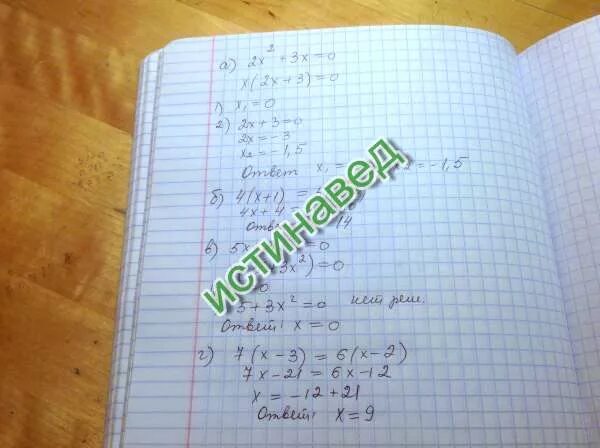 а) 2x² + 3x = 0
x(2x+3) = 0
1) x₁ = 0
2) 2x+3=0
2x = -3
x₂ = -1,5
Ответ x₁ = = -1,5
б) 4(x+1) =
4x + 4 =
14
в) 5x = 0
3x²) = 0
5 + 3x² = 0 нет реш.
Ответ: x = 0
г) 7(x-3) = 6(x-2)
7x-21 = 6x-12
x = -12+21
Ответ: x = 9
истинавед